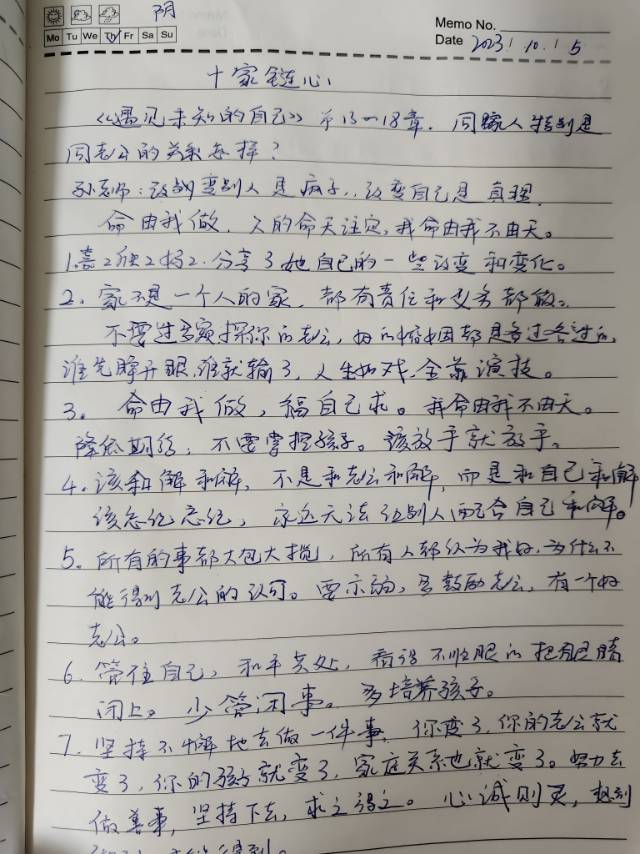 阴
Memo No.
Mo Tu We Th Fr Sa Su
Date 2023/10.15
十家链心
《遇见未知的自己》第13-18章. 同家人特别是
同老公的关系怎样?
孙老师:改变别人是疯子,改变自己是真理.
命由我做. 人的命天注定,我命由我不由天。
1.喜2 2好2.分享了她自己的一些改变和变化。
2. 家不是一个人的家, 都有责任和义务都做。
不要过多窥探你的老公, 婚姻都是各过各过的,
谁先睁开眼,谁就输了, 人生如戏,全靠演技。
3. 命由我做, 福自己求。我命由我不由天。
降低期待, 不要掌控孩子。该放手就放手。
4. 该和解和解, 不是和老公和解, 而是和自己和解
该忘记忘记, 永远无法让别人配合自己和解。
5. 所有的事都大包大揽, 所有人都认为我好,为什么不
能得到老公的认可。要示弱, 多鼓励老公, 有一个好
老公。
6. 管住自己, 和平共处, 看得不顺眼的把眼睛
闭上。少管闲事。多培养孩子。
7. 坚持不懈地去做一件事, 你变了,你的老公就
变了,你的孩子就变了,家庭关系也就变了。努力去
做善事, 坚持下去, 求之得之。心诚则灵, 想到
得到。